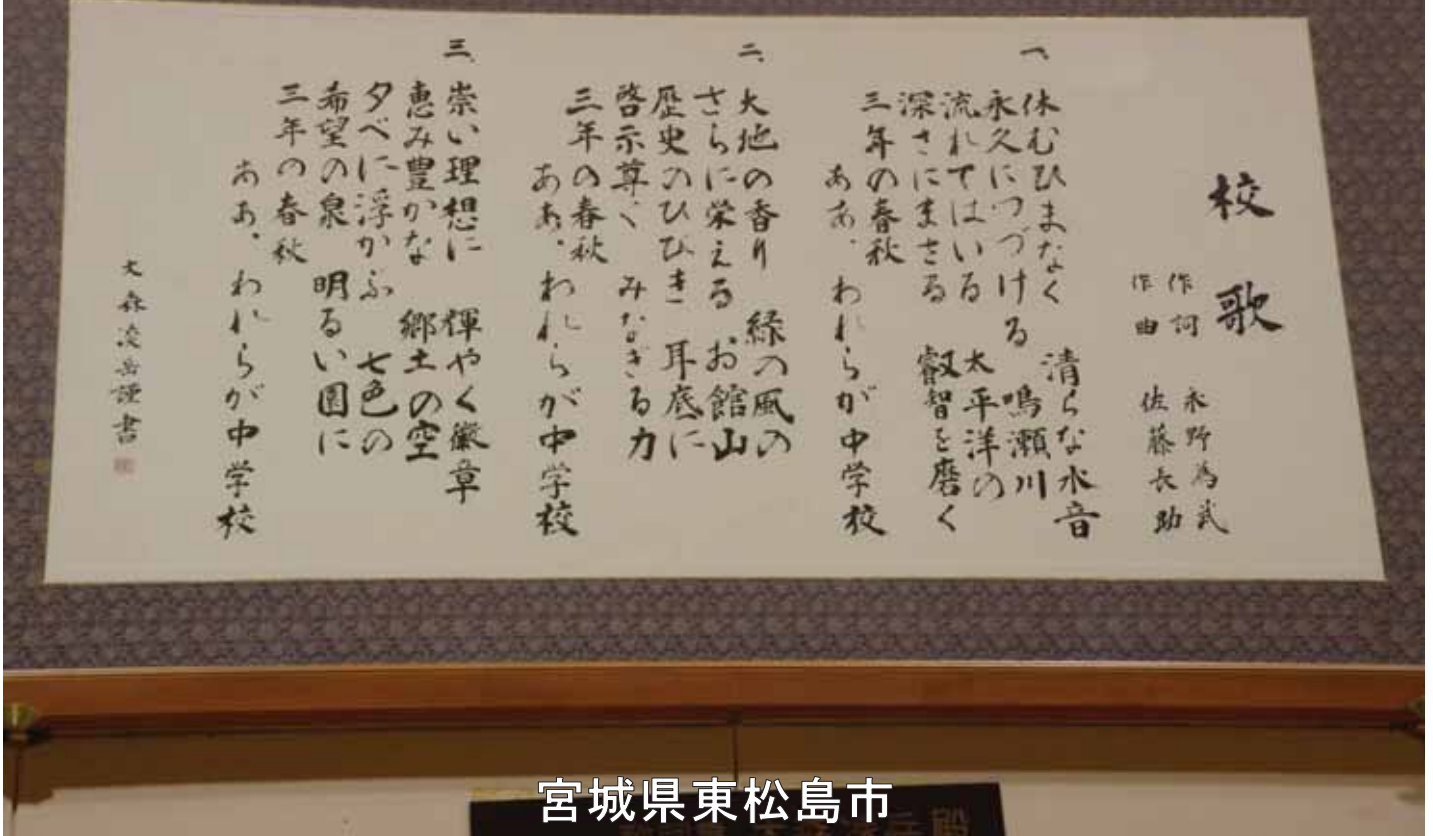 校歌
作詞 永野為武
作曲 佐藤長助
一、休むひまなく 清らな水音
永久につづける 鳴瀬川
流れてはいる 太平洋の
深さにまさる 叡智を磨く
三年の春秋
ああ、われらが中学校
二、大地の香り 緑の風の
さらに栄える お館山
歴史のひびき 耳底に
啓示尊く みなぎる力
三年の春秋
ああ、われらが中学校
三、崇い理想に 輝やく徽章
恵み豊かな 郷土の空
夕べに浮かぶ 七色の
希望の泉 明るい園に
三年の春秋
ああ、われらが中学校
大森凌岳謹書
宮城県東松島市